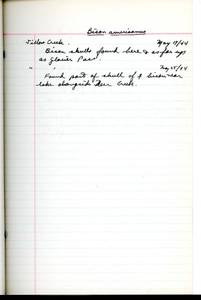 Bison americanus
Willow Creek. May 19/24
Bison skulls found here & as far up
as Glacier Pass.
" " Aug 25/24
Found part of skull of Bison near
lake alongside Deer Creek.